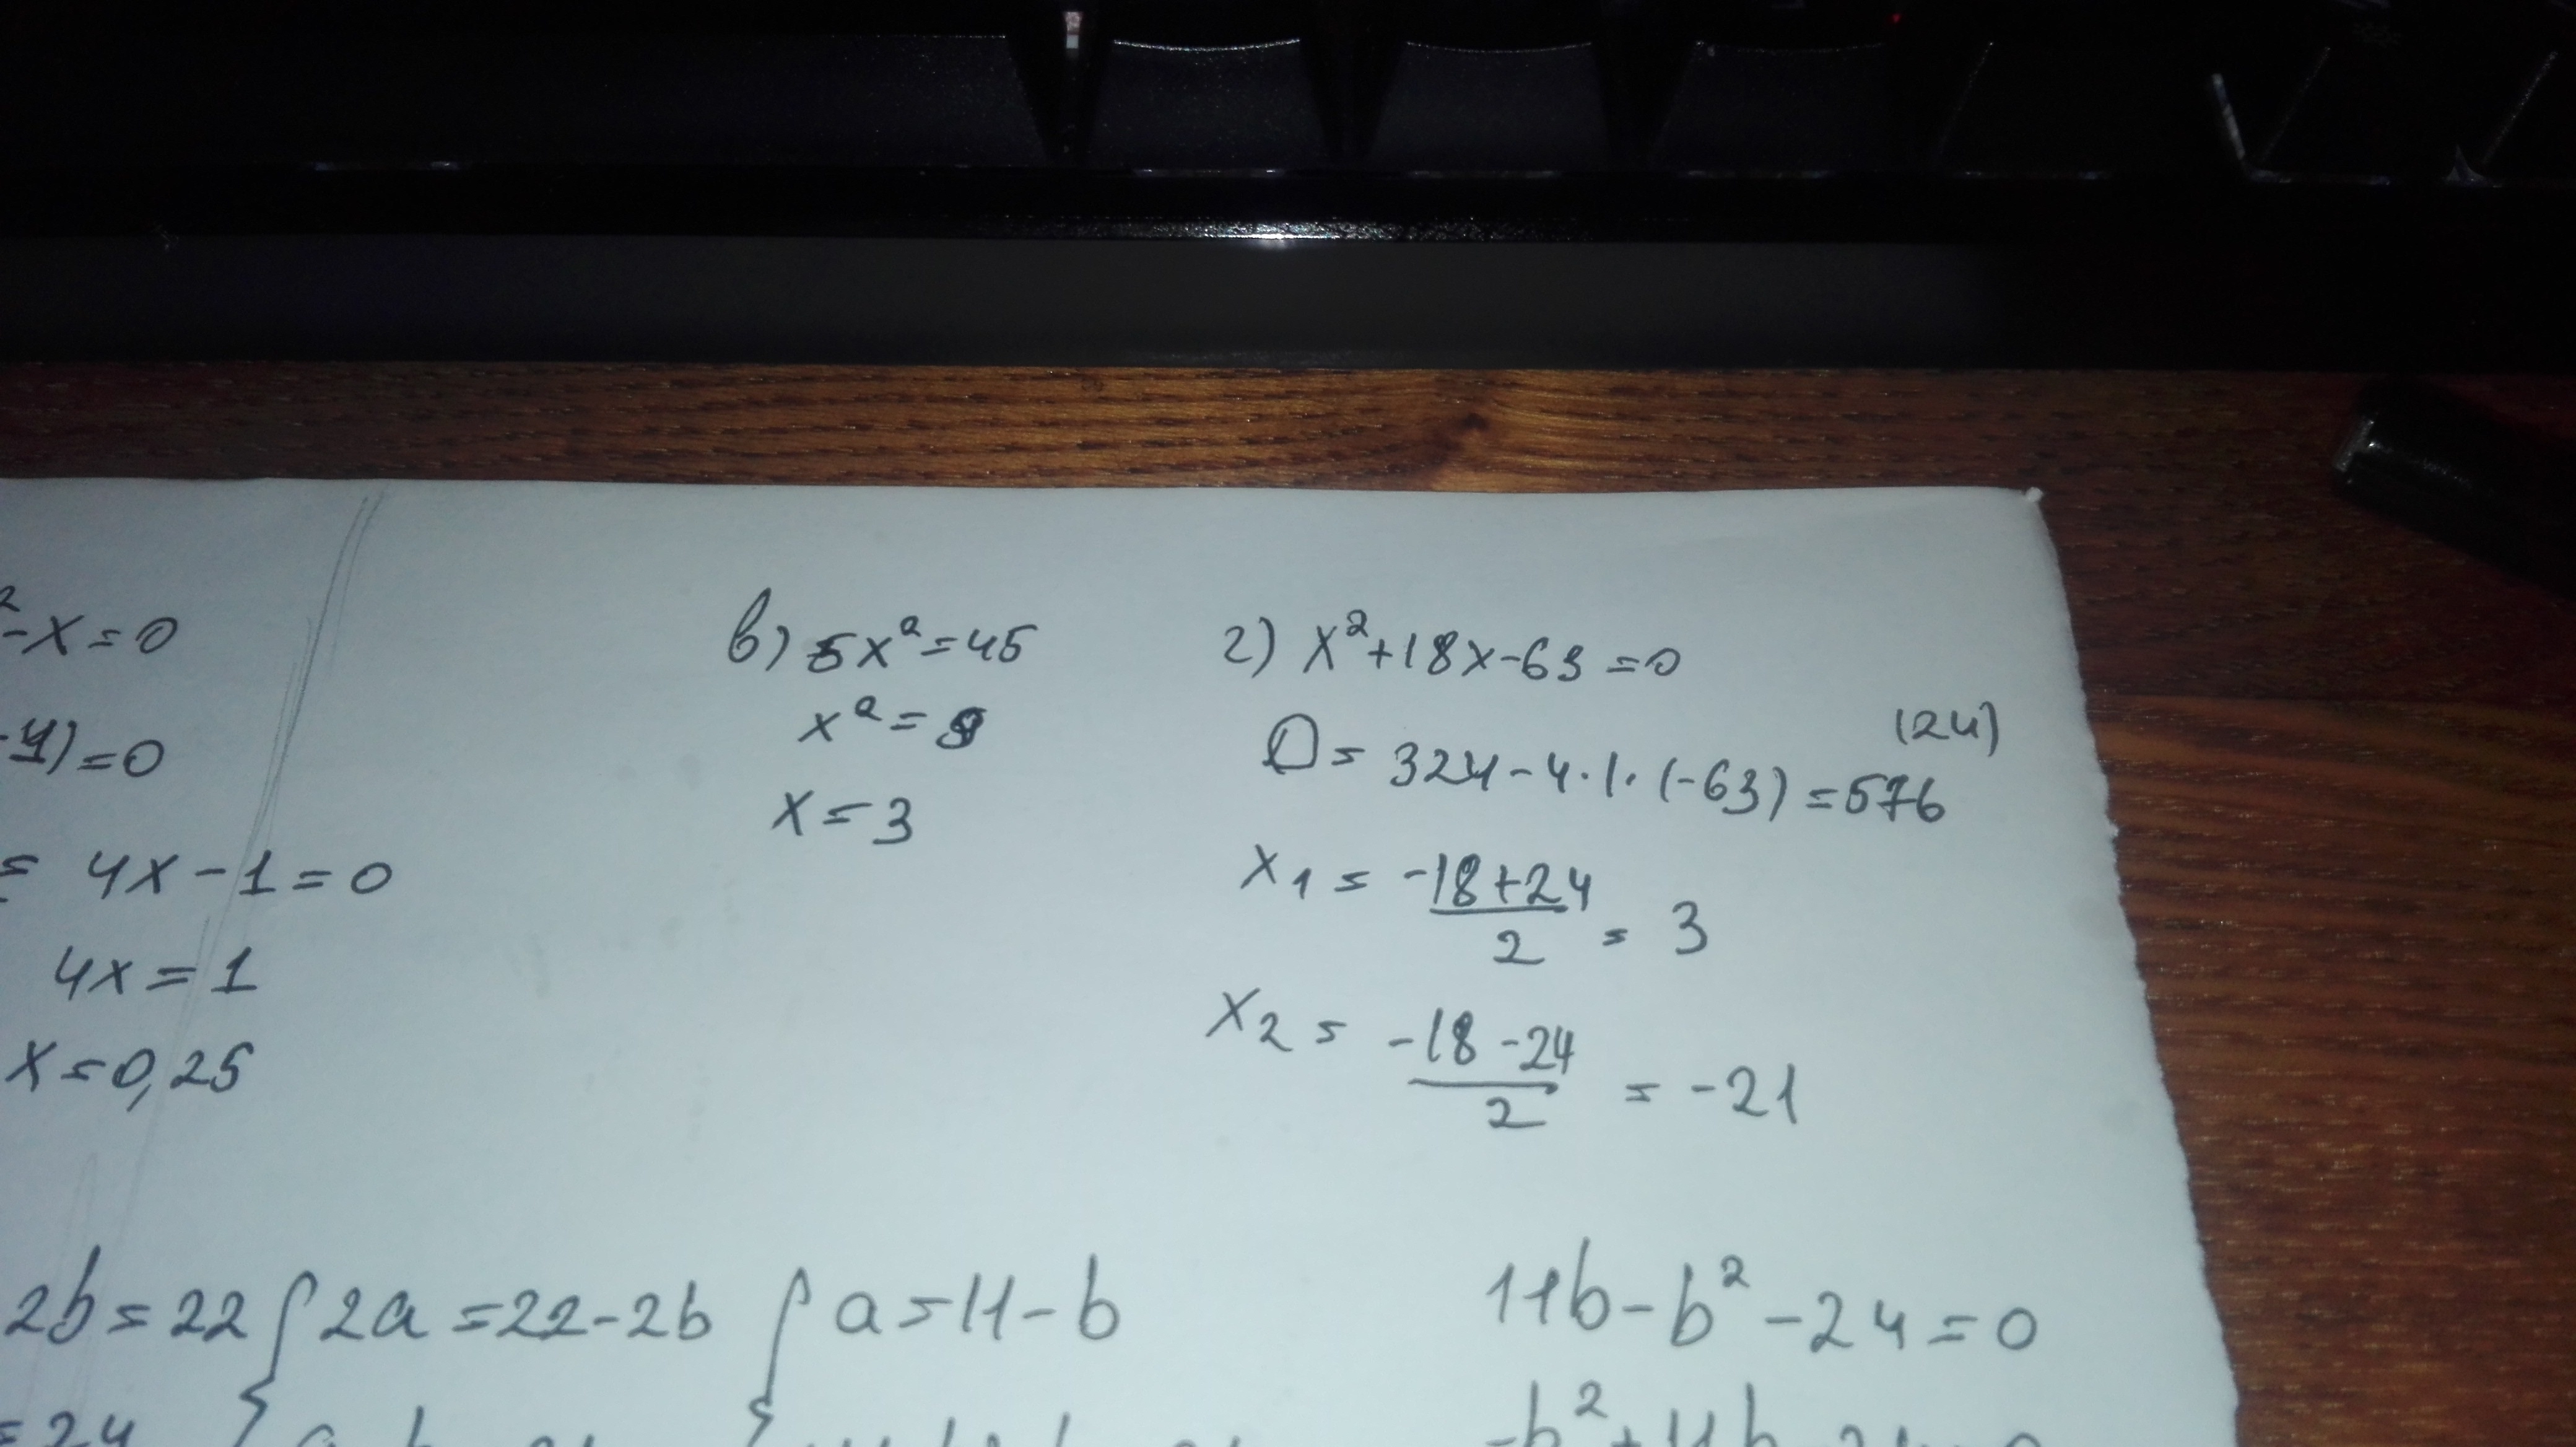 ²-x=0
-1)=0
= 4x-1=0
4x=1
x=0,25
в) 5x²=45
x²=9
x=3
г) x²+18x-63=0
D=324-4·1·(-63)=576 (24)
x₁= -18+24 / 2 = 3
x₂= -18-24 / 2 = -21
2b=22 { 2a=22-2b { a=11-b
=24
11b-b²-24=0